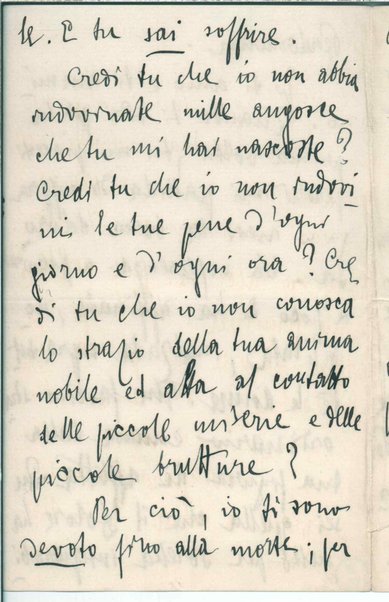 le. E tu sai soffrire
Credi tu che io non abbia
indovinate mille angosce
che tu mi hai nascoste?
Credi tu che io non indovi
ni le tue pene d'ogni
giorno e d'ogni ora? Cre
di tu che io non conosca
lo strazio della tua anima
nobile ed alta al contatto
delle piccole miserie e delle
piccole brutture?
Per ciò, io ti sono
devoto fino alla morte; per